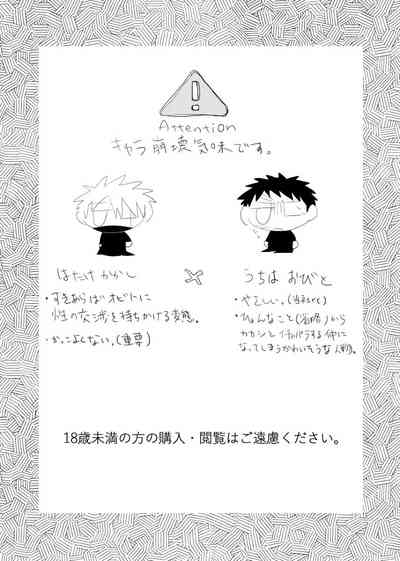 Attention
キャラ崩壊気味です。
はたけ かかし
×
うちは おびと
・すきあらばオビトに
性の交渉を持ちかける変態。
・かっこよくない。(重要)
・やさしい。
・ひょんなこと(省略)から
カカシとイチャパラする仲に
なってしまうかわいそうな人物。
18歳未満の方の購入・閲覧はご遠慮ください。